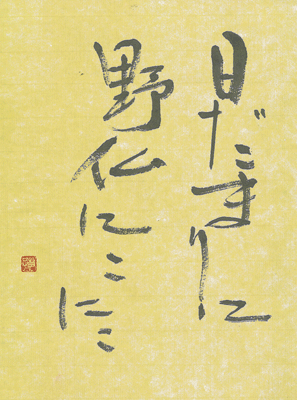 日だまりに
野仏にこにこ